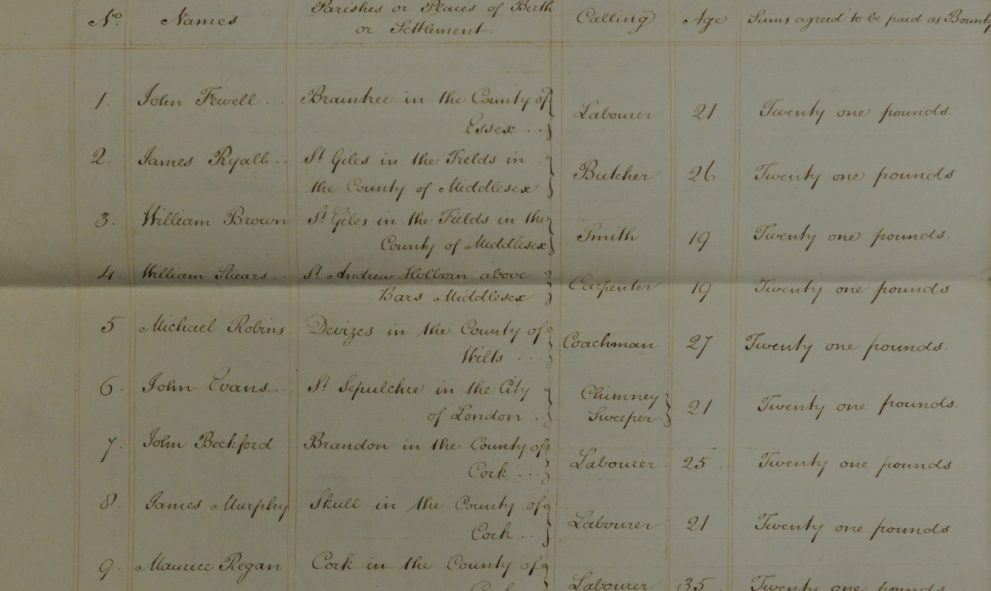 No. Names Parishes or Places of Birth or Settlement Calling Age Sums agreed to be paid as Bounty
1. John Fewell Braintree in the County of
Essex Labourer 21 Twenty one pounds.
2. James Ryall St Giles in the Fields in
the County of Middlesex Butcher 26 Twenty one pounds
3. William Brown St Giles in the Fields in the
County of Middlesex Smith 19 Twenty one pounds.
4. William Shears St Andrew Holborn above
Bars Middlesex Carpenter 19 Twenty one pounds
5 Michael Robins Devizes in the County of
Wilts Coachman 27 Twenty one pounds.
6. John Evans St Sepulchre in the City
of London Chimney Sweeper 21 Twenty one pounds
7. John Beckford Brandon in the County of
Cork Labourer 25 Twenty one pounds
8. James Murphy Skull in the County of
Cork Labourer 21 Twenty one pounds
9. Maurice Regan Cork in the County of
Cork Labourer 35 Twenty one pounds